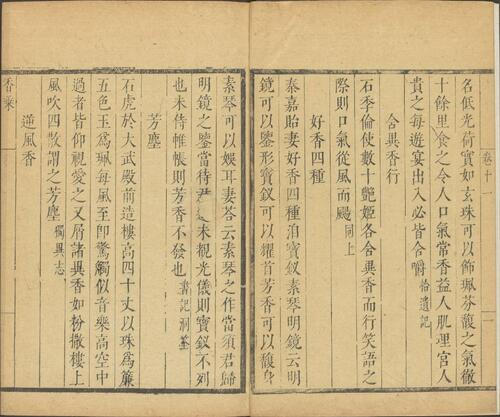 卷十一
名低光荷實如玄珠可以飾珮芬馥之氣徹
十餘里食之令人口氣常香益人肌理宮人
貴之每遊宴出入必皆含嚼 拾遺記
含異香行
石季倫使數十艷姬各含異香而行笑語之
際則口氣從風而颺 同上
好香四種
秦嘉貽妻好香四種洎寶釵素琴明鏡云明
鏡可以鑒形寶釵可以耀首芳香可以馥身
素琴可以娛耳妻答云素琴之作當須君歸
明鏡之鑒當待君未覩光儀則寶釵不列
也未侍帷帳則芳香不發也 書記洞筌
芳塵
石虎於大武殿前造樓高四十丈以珠爲簾
五色玉爲珮每風至即驚觸似音樂高空中
過者皆仰視愛之又屑諸異香如粉撒樓上
風吹四散謂之芳塵 獨異志
逆風香
香乘